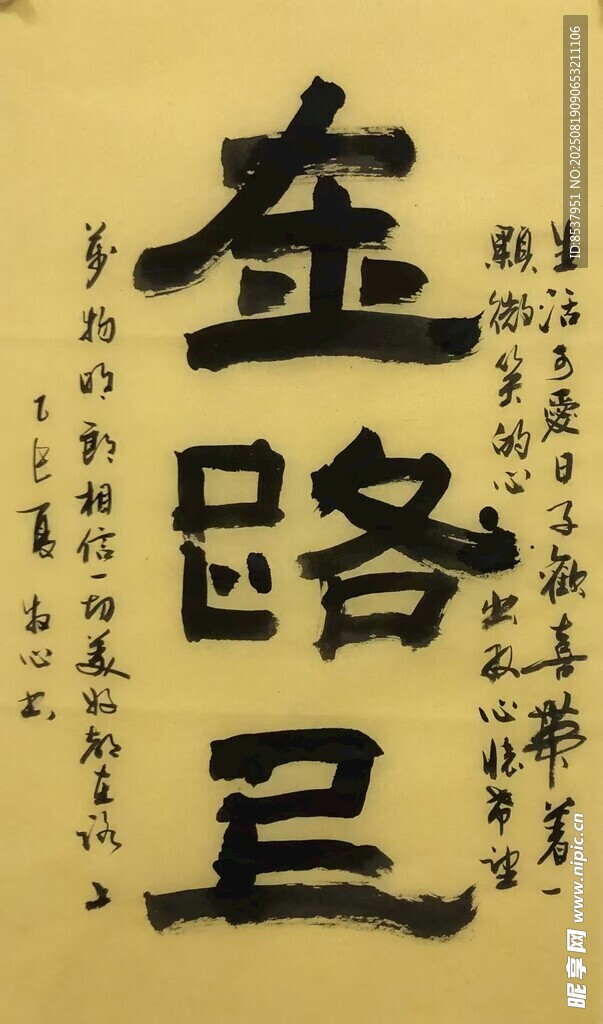 在路上
生活可愛日子歡喜帶着一
顆微笑的心 出发心懷希望
萬物明朗相信一切美好都在路上
乙巳夏 牧心书
ID:8537951 NO:20250819090653211106
昵享网 www.nipic.cn